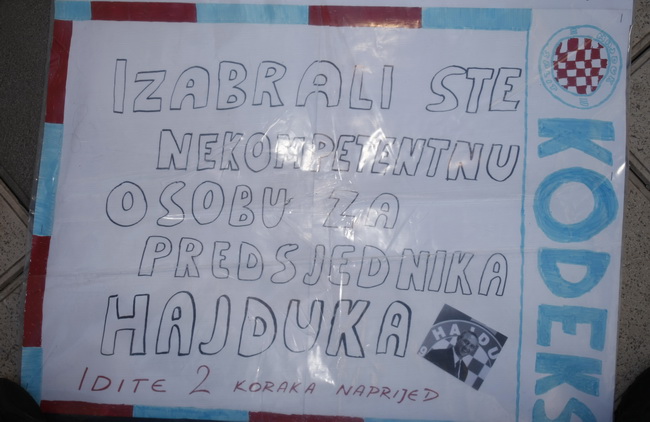 IZABRALI STE
NEKOMPETENTNU
OSOBU ZA
PREDSJEDNIKA
HAJDUKA
IDITE 2 KORAKA NAPRIJED
KODEKS